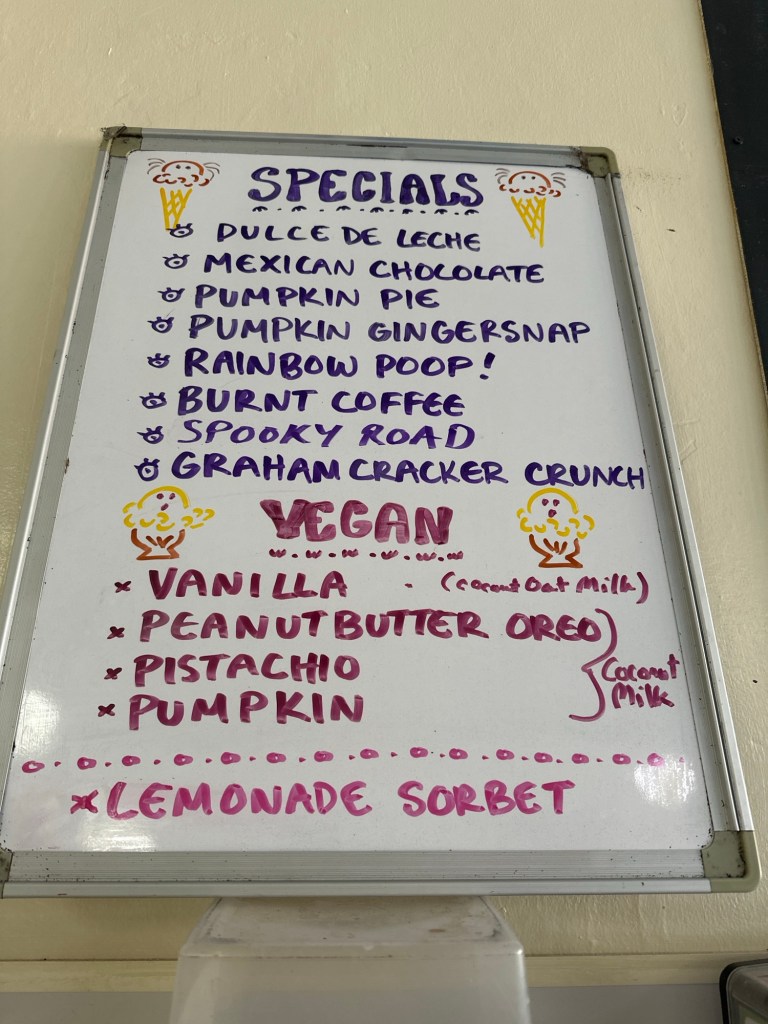 SPECIALS
DULCE DE LECHE
MEXICAN CHOCOLATE
PUMPKIN PIE
PUMPKIN GINGERSNAP
RAINBOW POOP!
BURNT COFFEE
SPOOKY ROAD
GRAHAM CRACKER CRUNCH
VEGAN
VANILLA - (Coconut Oat Milk)
PEANUT BUTTER OREO
PISTACHIO
PUMPKIN
Coconut
Milk
LEMONADE SORBET